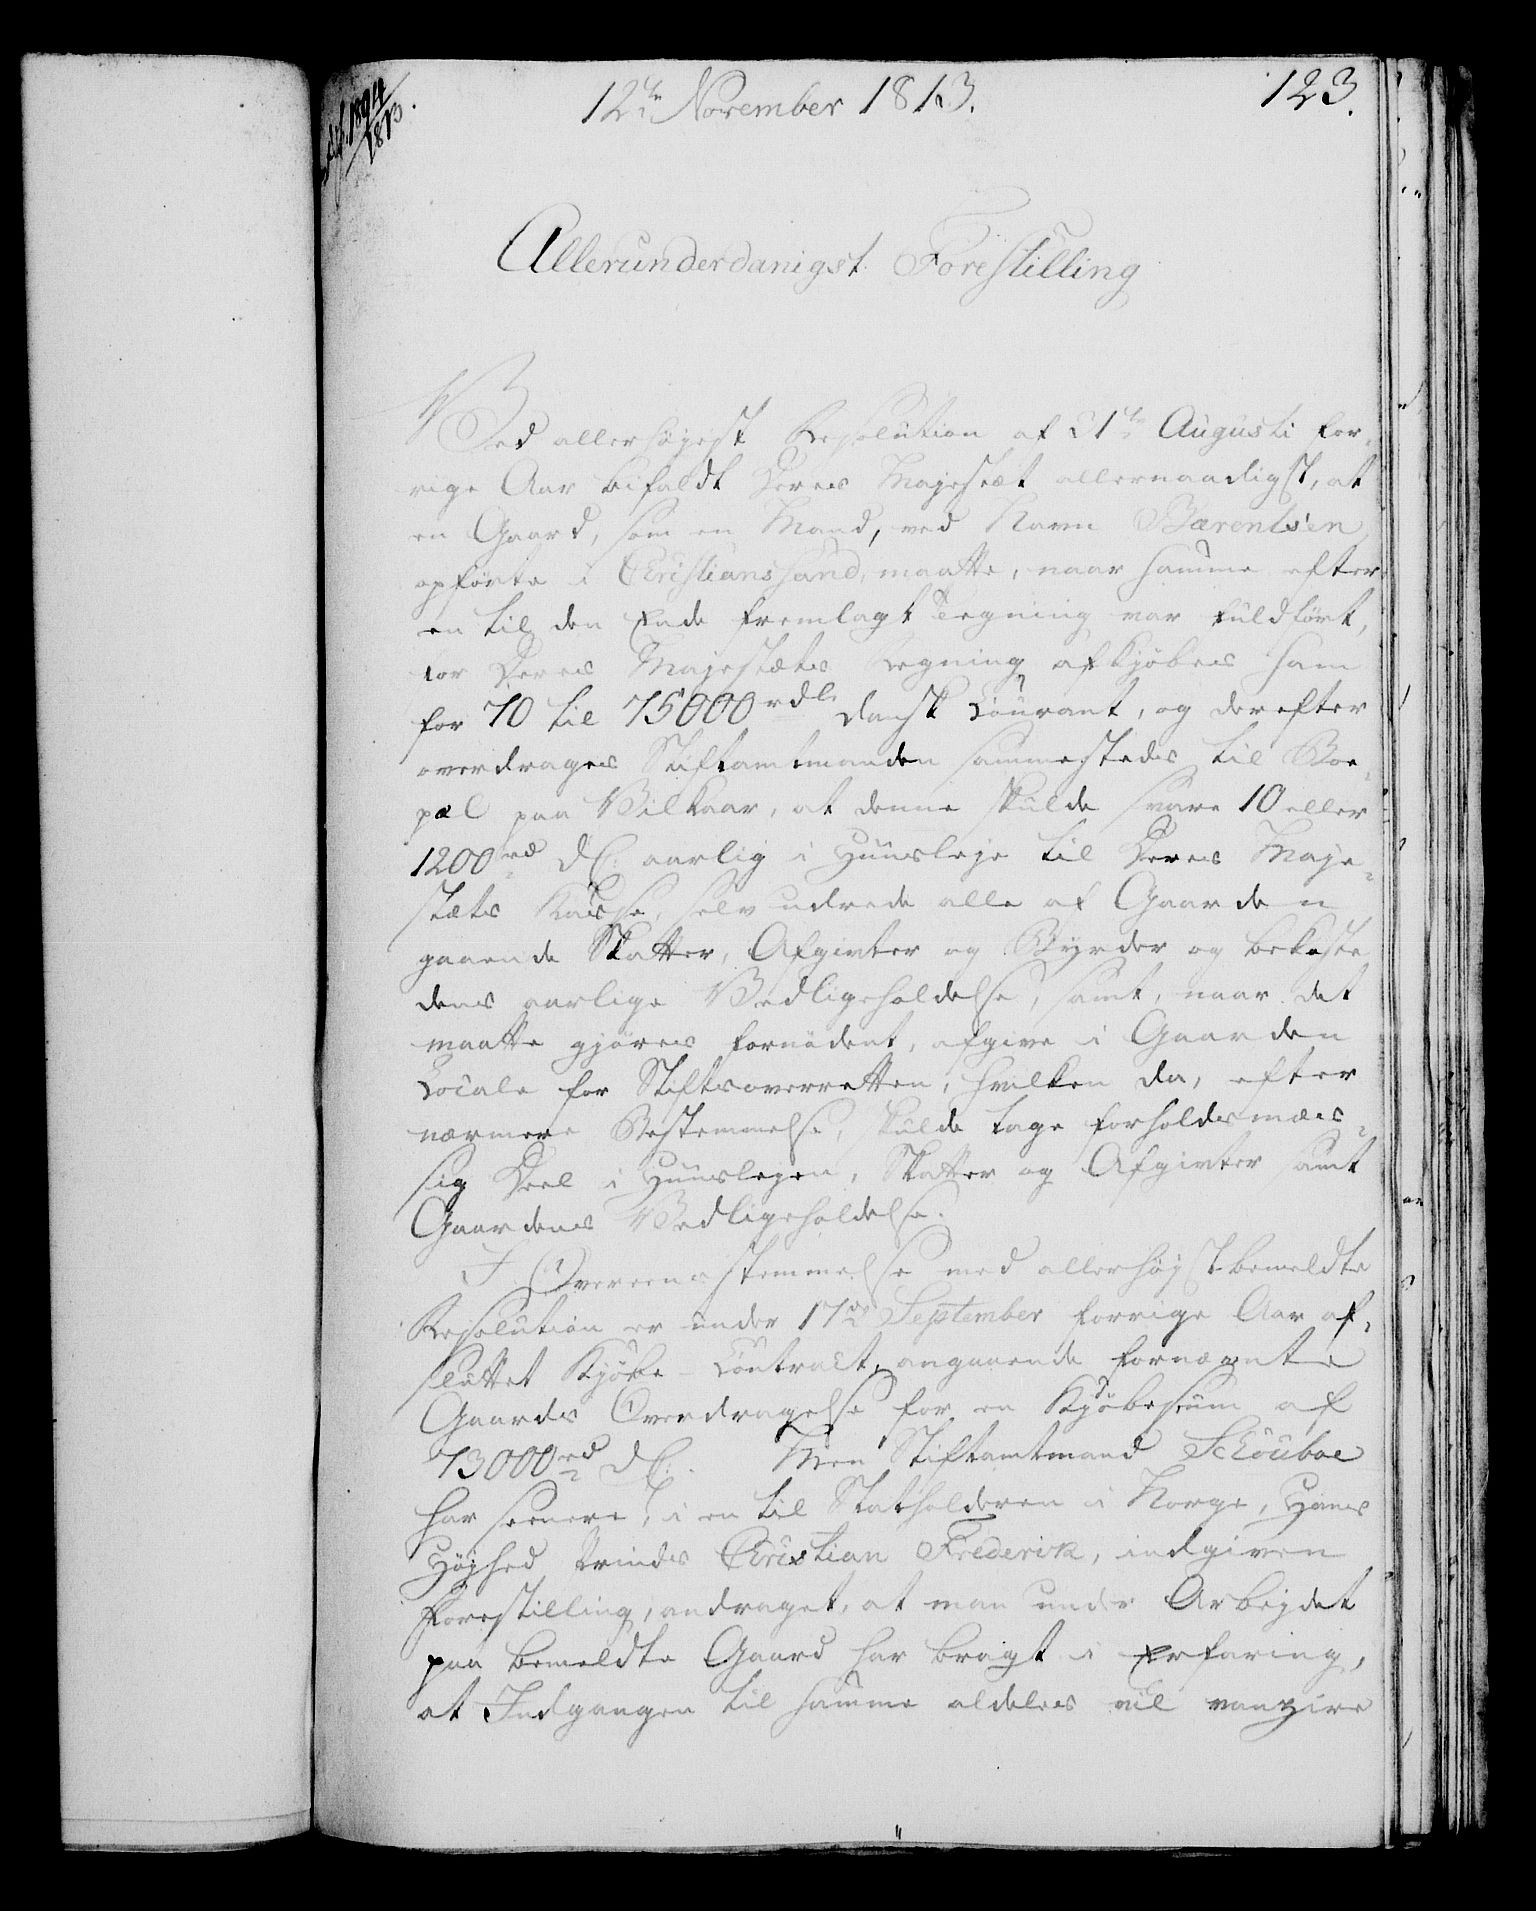 12te November 1813.
123.
1894
1813.
Allerunderdanigst Forestilling
Ved allerhøjest Resolution af 31te Augusti for-
rige Aar bifaldt Deres Majestæt allernaadigst, at
en Gaard, som en Mand, ved Navn Bærentsen
opførte i Christianssand, maatte, naar samme efter
en til den Ende fremlagt Tegning var fuldført,
for Deres Majestæts Regning afkjøbes ham
for 70 til 75000 rdlr dansk Courant, og derefter
overdrages Stiftamtmanden sammesteds til Boe-
pæl paa Vilkaar, at denne skulde svare 10 eller
1200 rd d C. aarlig i Huusleje til Deres Maje-
stæts Kasse, selv udrede alle af Gaarden
gaaende Skatter, Afgivter og Byrder og bekoste
dens aarlige Vedligeholdelse, samt, naar det
maatte gjøres fornødent, afgive i Gaarden
Locale for Stiftsoverretten, hvilken da, efter
nærmere Bestemmelse, skulde tage forholdsmæs-
sig Deel i Huuslejen, Skatter og Afgivter samt
Gaardens Vedligeholdelse.
I Overeensstemmelse med allerhøjstbemeldte
Resolution er under 17de September forrige Aar af-
sluttet Kjøbe-Contract, angaaende fornævnte
Gaards Overdragelse for en Kjøbesum af
73000 rd d C. Men Stiftamtmand Schouboe
har senere, i en til Statholderen i Norge, Hans
Højhed Prinds Christian Frederik, indgiven
Forestilling, andraget, at man under Arbejdet
paa bemeldte Gaard har bragt i Erfaring,
at Indgangen til samme aldeles vil vanzire